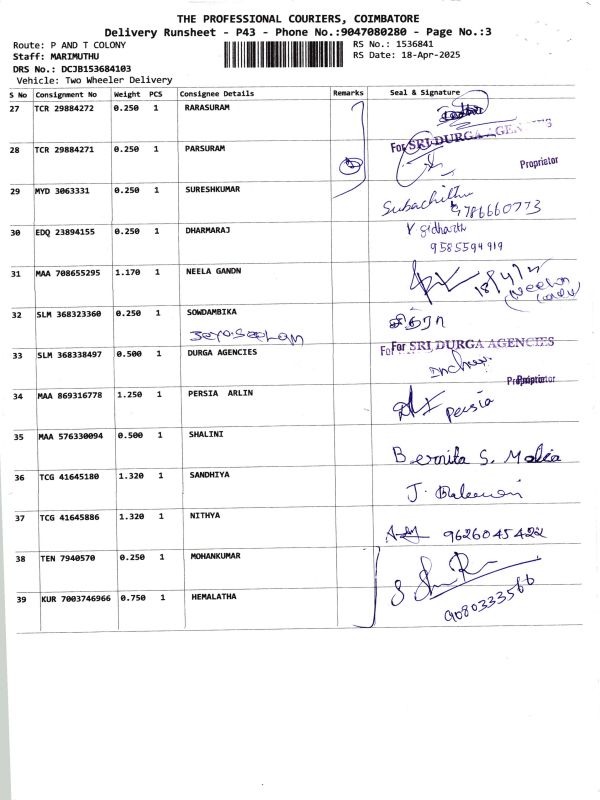 THE PROFESSIONAL COURIERS, COIMBATORE
Delivery Runsheet - P43 - Phone No.:9047080280 - Page No.:3
Route: P AND T COLONY RS No.: 1536841
Staff: MARIMUTHU RS Date: 18-Apr-2025
DRS No.: DCJB153684103
Vehicle: Two Wheeler Delivery
S No Consignment No Weight PCS Consignee Details Remarks Seal & Signature
27 TCR 29884272 0.250 1 RARASURAM
For SRI DURGA AGENCIES
28 TCR 29884271 0.250 1 PARSURAM
Proprietor
29 MYD 3063331 0.250 1 SURESHKUMAR
9786660773
30 EDQ 23894155 0.250 1 DHARMARAJ
9585594919
31 MAA 708655295 1.170 1 NEELA GANDN
18/4/25
32 SLM 368323360 0.250 1 SOWDAMBIKA
சித்ரா
33 SLM 368338497 0.500 1 DURGA AGENCIES
For SRI DURGA AGENCIES
Proprietor
34 MAA 869316778 1.250 1 PERSIA ARLIN
persia
35 MAA 576330094 0.500 1 SHALINI
Bernita S.
36 TCG 41645180 1.320 1 SANDHIYA
J.
37 TCG 41645886 1.320 1 NITHYA
9626045422
38 TEN 7940570 0.250 1 MOHANKUMAR
39 KUR 7003746966 0.750 1 HEMALATHA
9080333566